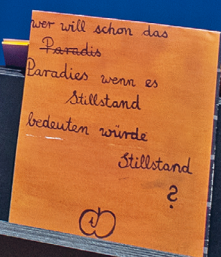 wer will schon das
Paradis
Paradies wenn es
Stillstand
bedeuten würde
Stillstand
?